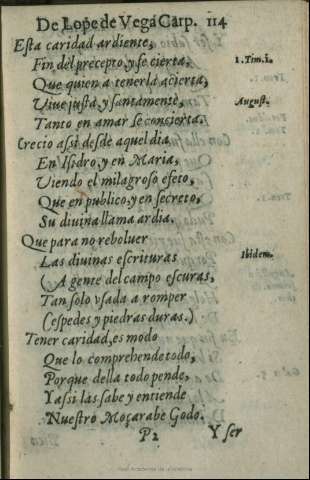 De Lope de Vega Carp. 114
Esta caridad ardiente,
Fin del precepto, y fe cierta, 1. Tim. 1.
Que quien a tenerla acierta,
Viue justa, y santamente, August.
Tanto en amar se concierta.
Crecio assi desde aquel dia
En Isidro, y en Maria,
Uiendo el milagroso efeto,
Que en publico, y en secreto,
Su diuina llama ardia.
Que para no reboluer
Las diuinas escrituras Ibidem.
(A gente del campo escuras,
Tan solo vsada a romper
Cespedes y piedras duras.)
Tener caridad, es modo
Que lo comprehende todo,
Porque della todo pende,
Y assi las sabe y entiende
Nuestro Moçarabe Godo.
P2 Y ser